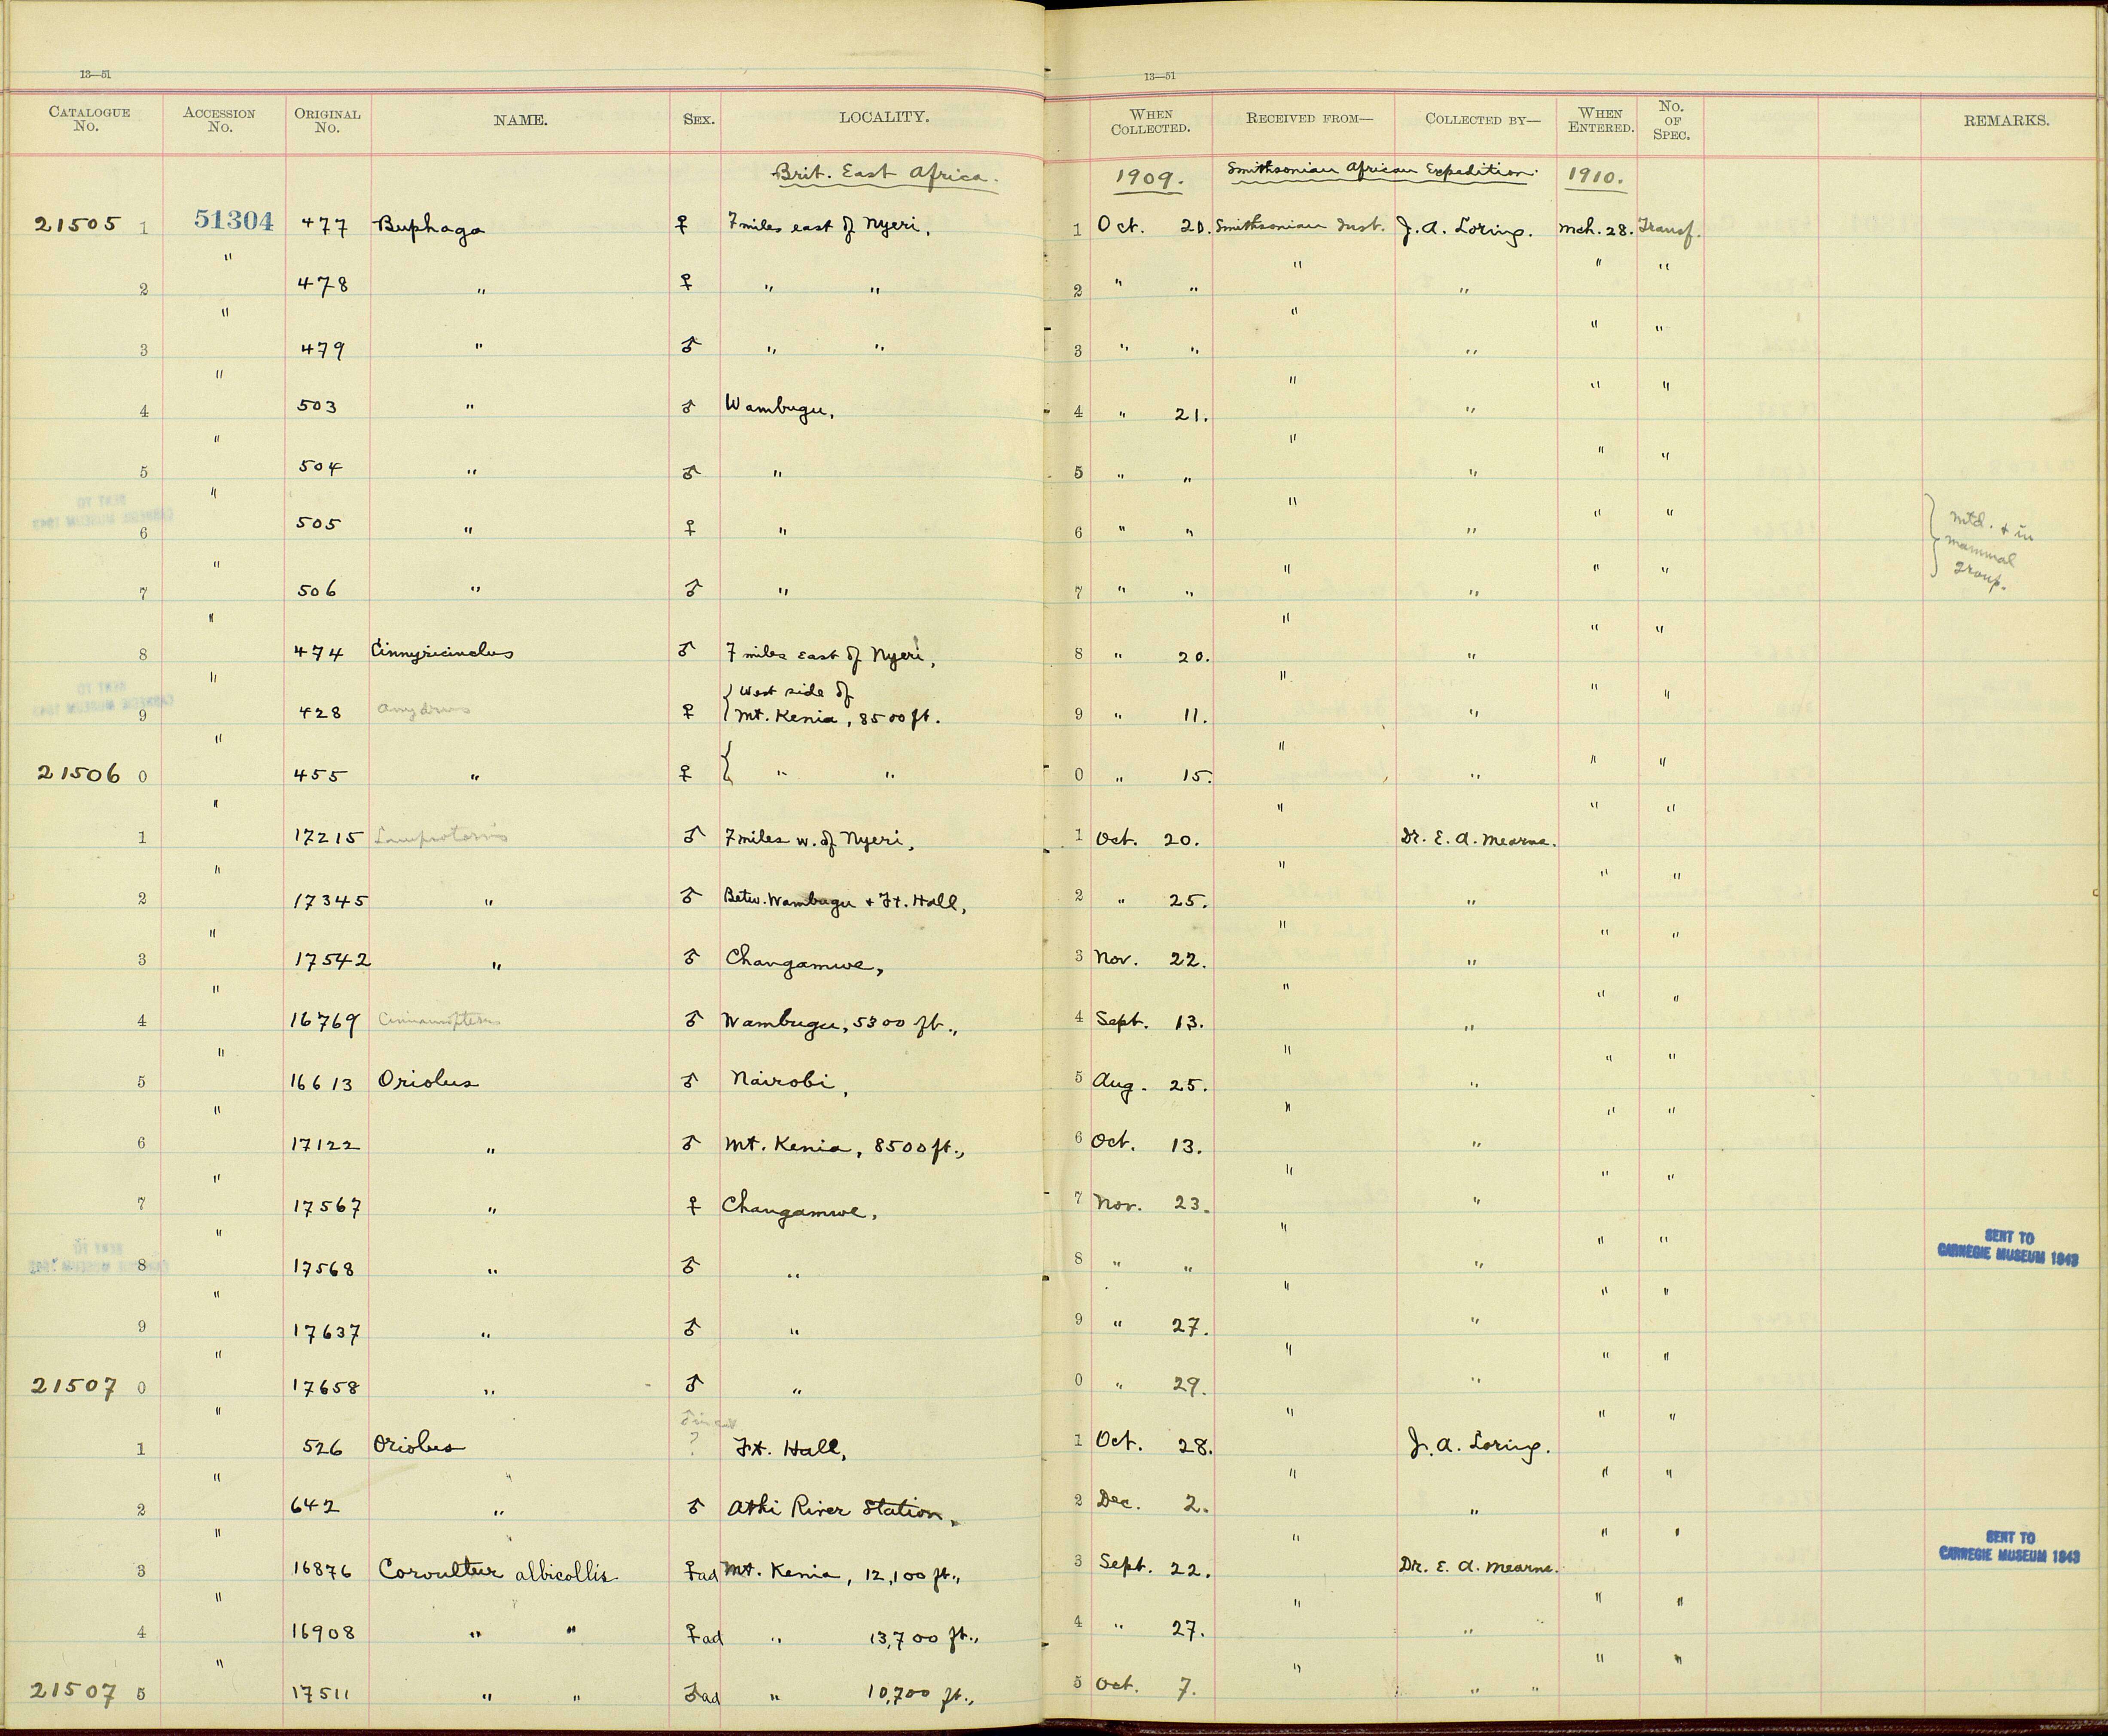 13—51
13—51
CATALOGUE No. ACCESSION No. ORIGINAL No. NAME. SEX. LOCALITY. WHEN COLLECTED. RECEIVED FROM— COLLECTED BY— WHEN ENTERED. No. OF SPEC. REMARKS.
Brit. East Africa. 1909. Smithsonian African Expedition. 1910.
21505 1 51304 477 Buphaga ♀ 7 miles east of Nyeri, 1 Oct. 20. Smithsonian Inst. J. A. Loring. Mch. 28. Transf.
2 " 478 " ♀ " " 2 " " " " " "
3 " 479 " ♂ " " 3 " " " " " "
4 " 503 " ♂ Wambugu, 4 " 21. " " " "
5 " 504 " ♂ " 5 " " " " " "
6 " 505 " ♀ " 6 " " " " " " Mtd. + in
7 " 506 " ♂ " 7 " " " " " " mammal group.
8 " 474 Cinnyricinclus ♂ 7 miles east of Nyeri, 8 " 20. " " " "
9 " 428 Amydrus ♀ { West side of
Mt. Kenia, 8500 ft. 9 " 11. " " " "
21506 0 " 455 " ♀ { " " 0 " 15. " " " "
1 " 17215 Lamprotornis ♂ 7 miles w. of Nyeri, 1 Oct. 20. " Dr. E. A. Mearns. " "
2 " 17345 " ♂ Betw. Wambugu + Ft. Hall, 2 " 25. " " " "
3 " 17542 " ♂ Changamwe, 3 Nov. 22. " " " "
4 " 16769 ♂ Wambugu, 5300 ft., 4 Sept. 13. " " " "
5 " 16613 Oriolus ♂ Nairobi, 5 Aug. 25. " " " "
6 " 17122 " ♂ Mt. Kenia, 8500 ft., 6 Oct. 13. " " " "
7 " 17567 " ♀ Changamwe, 7 Nov. 23. " " " "
8 " 17568 " ♂ " 8 " " " " " " SENT TO
CARNEGIE MUSEUM 1943
9 " 17637 " ♂ " 9 " 27. " " " "
21507 0 " 17658 " ♂ " 0 " 29. " " " "
1 " 526 Oriolus ? Ft. Hall, 1 Oct. 28. " J. A. Loring. " "
2 " 642 " ♂ Athi River Station, 2 Dec. 2. " " " "
3 " 16876 Corvultur albicollis ♀ad Mt. Kenia, 12,100 ft., 3 Sept. 22. " Dr. E. A. Mearns. " " SENT TO
CARNEGIE MUSEUM 1943
4 " 16908 " " ♀ad " 13,700 ft., 4 " 27. " " " "
21507 5 " 17511 " " ♂ad " 10,700 ft., 5 Oct. 7. " " " " "